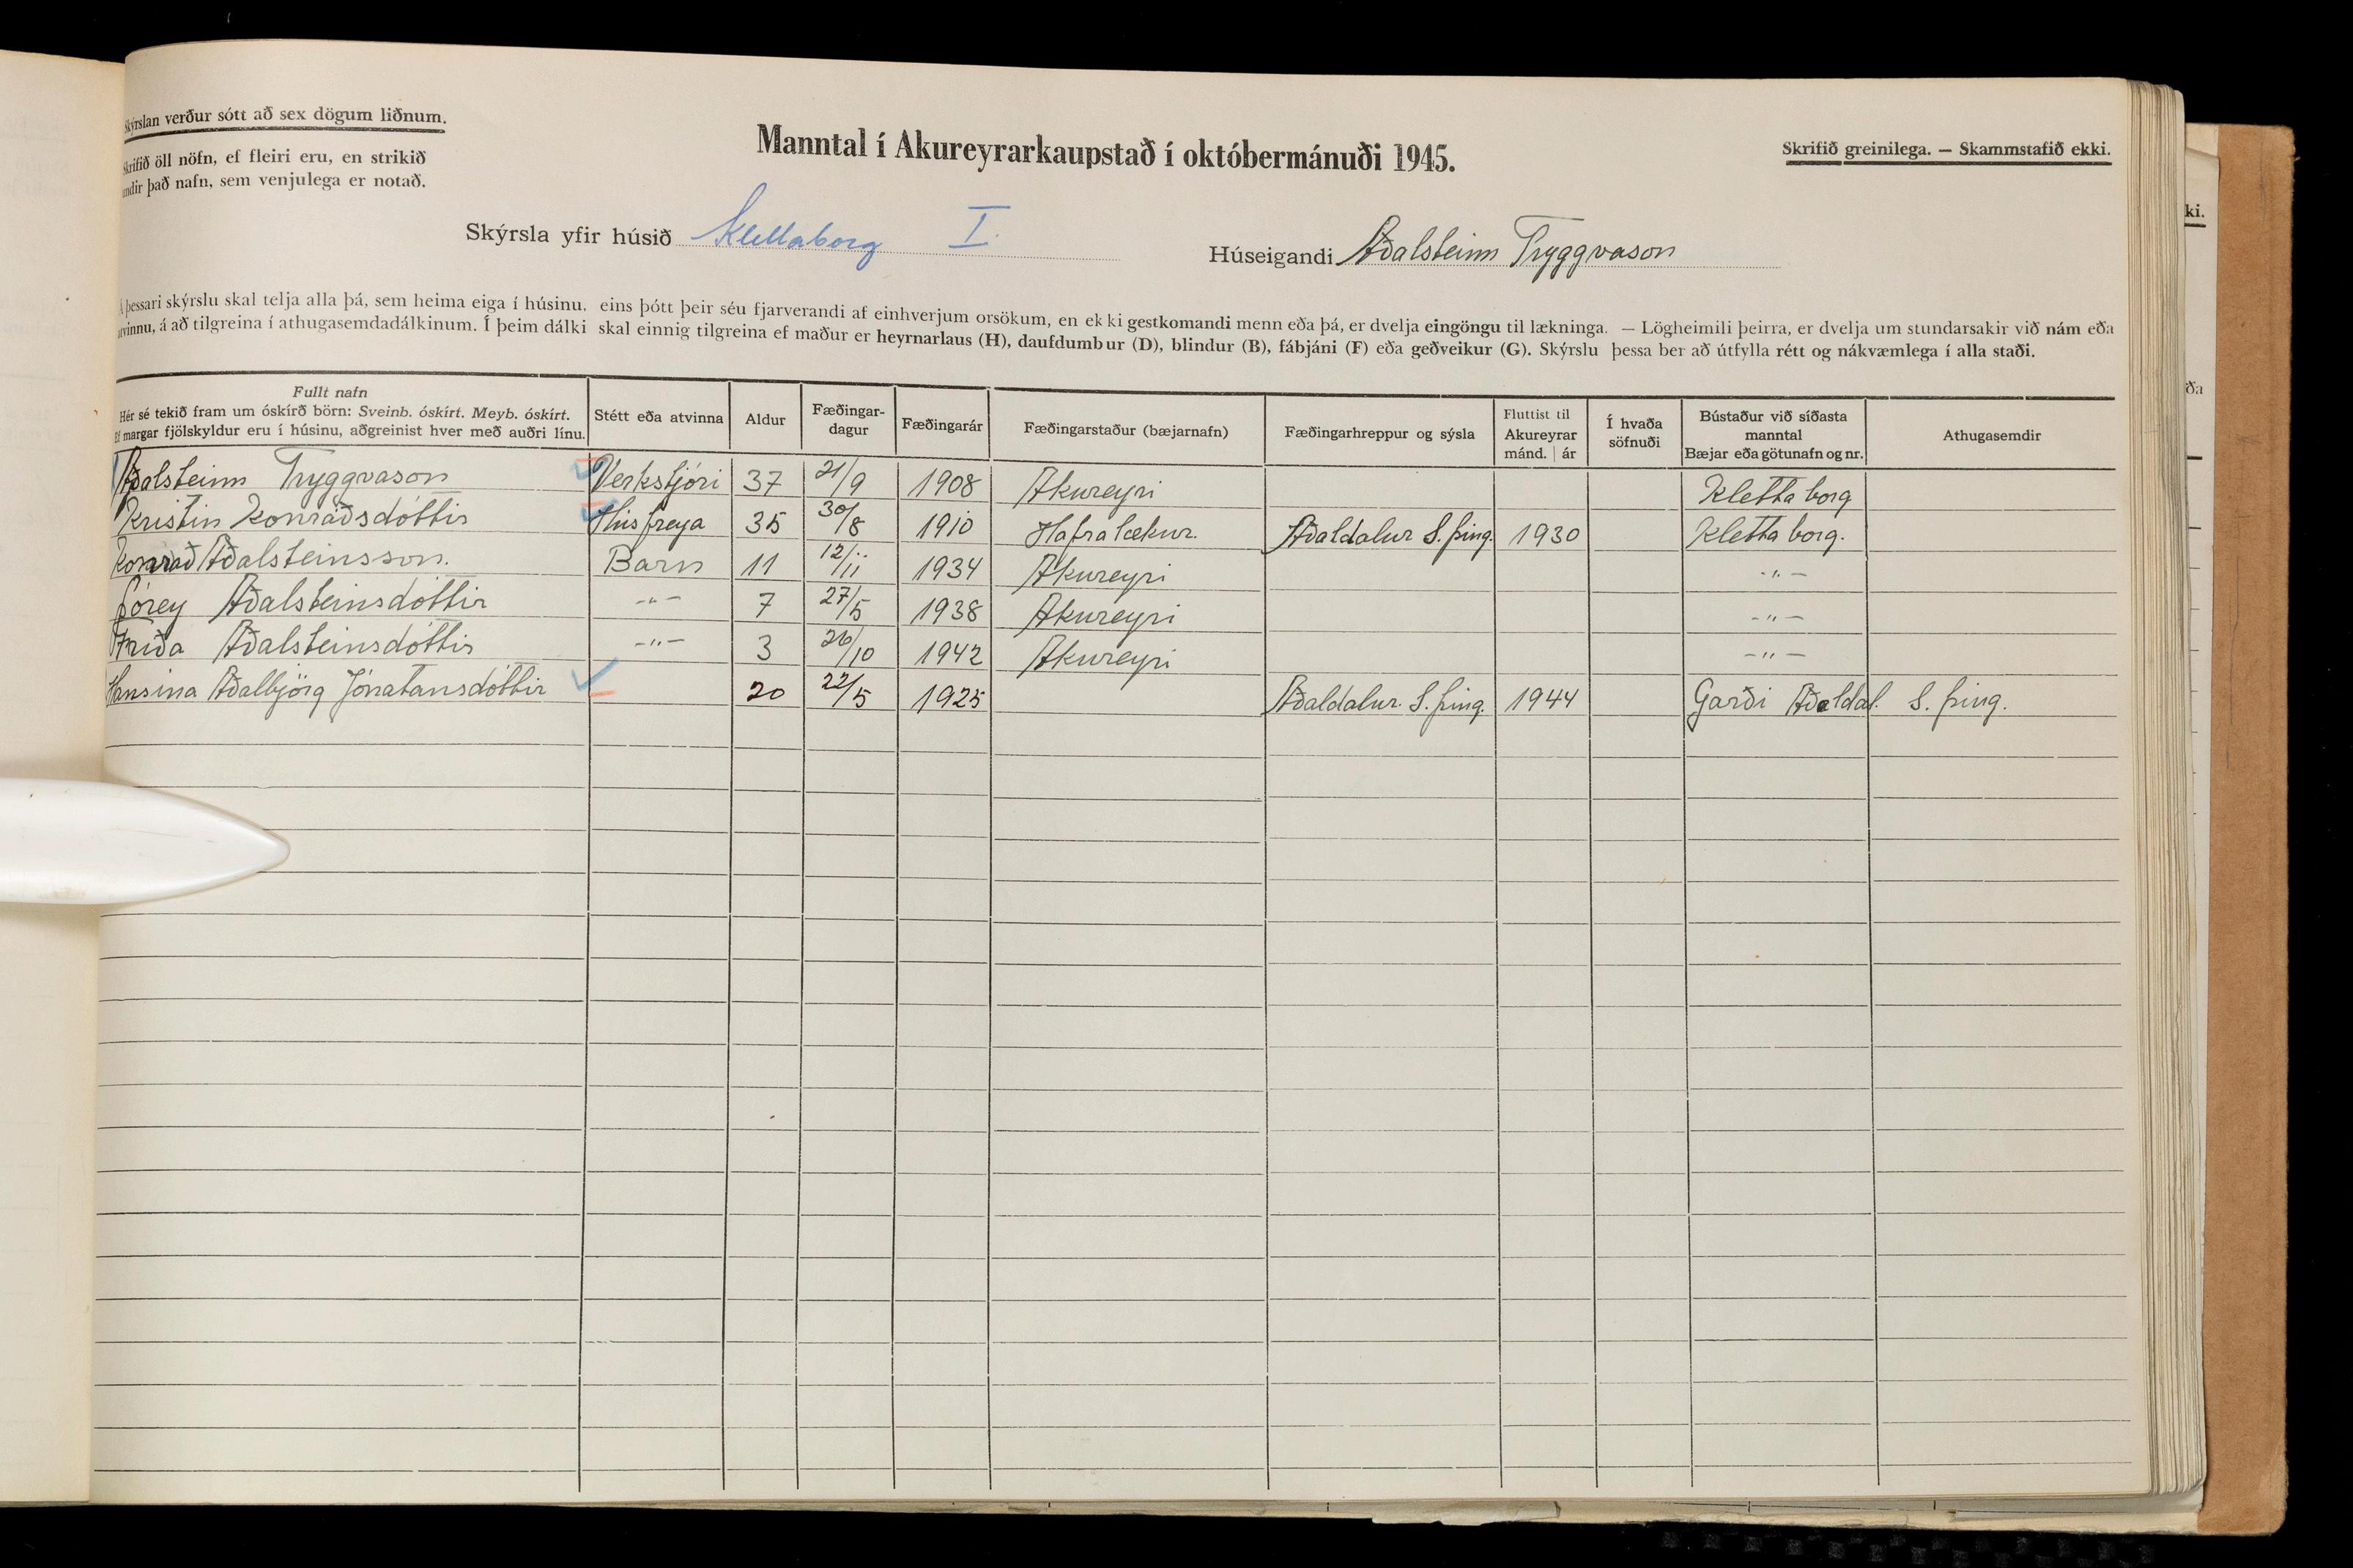 Skýrslan verður sótt að sex dögum liðnum.
Skrifið öll nöfn, ef fleiri eru, en strikið
undir það nafn, sem venjulega er notað.
Manntal í Akureyrarkaupstað í októbermánuði 1945.
Skrifið greinilega. — Skammstafið ekki.
Skýrsla yfir húsið Klettaborg I.
Húseigandi Aðalsteinn Tryggvason
Á þessari skýrslu skal telja alla þá, sem heima eiga í húsinu, eins þótt þeir séu fjarverandi af einhverjum orsökum, en ekki gestkomandi menn eða þá, er dvelja eingöngu til lækninga. — Lögheimili þeirra, er dvelja um stundarsakir við nám eða
atvinnu, á að tilgreina í athugasemdadálkinum. Í þeim dálki skal einnig tilgreina ef maður er heyrnarlaus (H), daufdumbur (D), blindur (B), fábjáni (F) eða geðveikur (G). Skýrslu þessa ber að útfylla rétt og nákvæmlega í alla staði.
Fullt nafn
Hér sé tekið fram um óskírð börn: Sveinb. óskírt. Meyb. óskírt.
Ef margar fjölskyldur eru í húsinu, aðgreinist hver með auðri línu.
Stétt eða atvinna
Aldur
Fæðingar-
dagur
Fæðingarár
Fæðingarstaður (bæjarnafn)
Fæðingarhreppur og sýsla
Fluttist til
Akureyrar
mánd. | ár
Í hvaða
söfnuði
Bústaður við síðasta
manntal
Bæjar eða götunafn og nr.
Athugasemdir
Aðalsteinn Tryggvason Verkstjóri 37 21/9 1908 Akureyri Klettaborg
Kristín Konráðsdóttir Húsfreya 35 30/8 1910 Hafralækur. Aðaldalur S. þing. 1930 Klettaborg.
Konráð Aðalsteinsson. Barn 11 12/11 1934 Akureyri -"-
Þórey Aðalsteinsdóttir -"- 7 27/5 1938 Akureyri -"-
Fríða Aðalsteinsdóttir -"- 3 26/10 1942 Akureyri -"-
Hansína Aðalbjörg Jónatansdóttir 20 22/5 1925 Aðaldalur. S. þing. 1944 Garði Aðaldal. S. þing.
ki.
ða